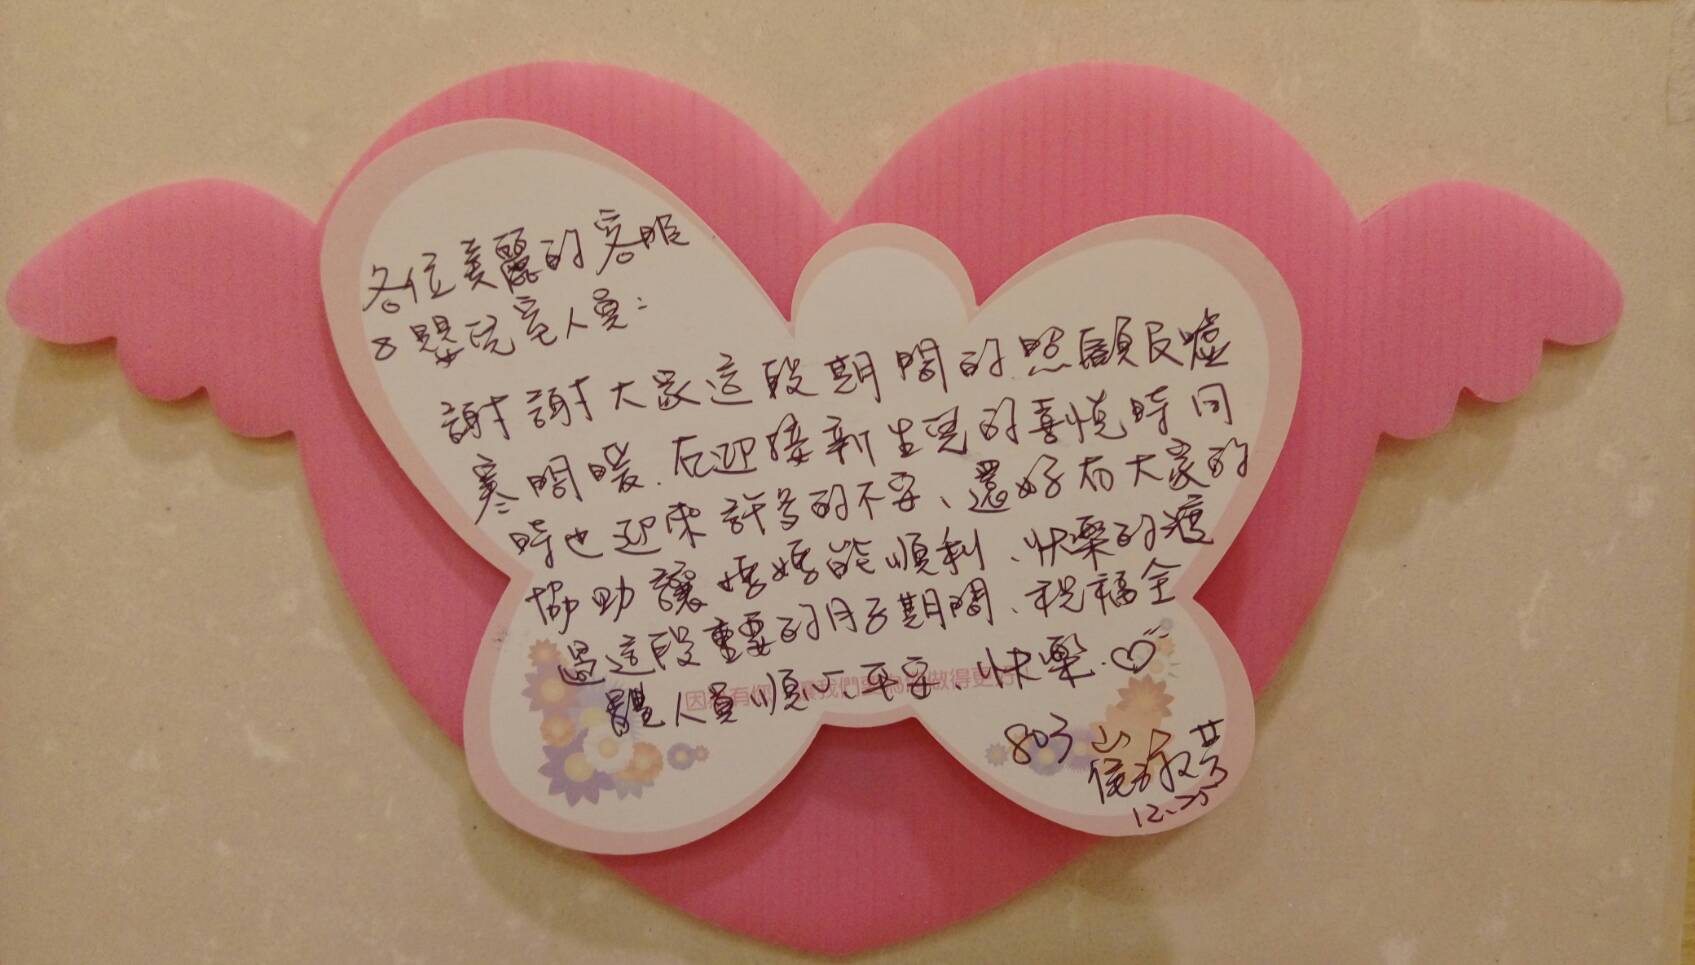 各位美麗的客服
&嬰兒室人員:
謝謝大家這段期間的照顧及噓
寒問暖.在迎接新生兒的喜悅時同
時也迎來許多的不安、還好有大家的
協助讓媽媽能順利、快樂的渡
過這段重要的月子期間、祝福全
體人員順心、平安、快樂.♡
803
12.25